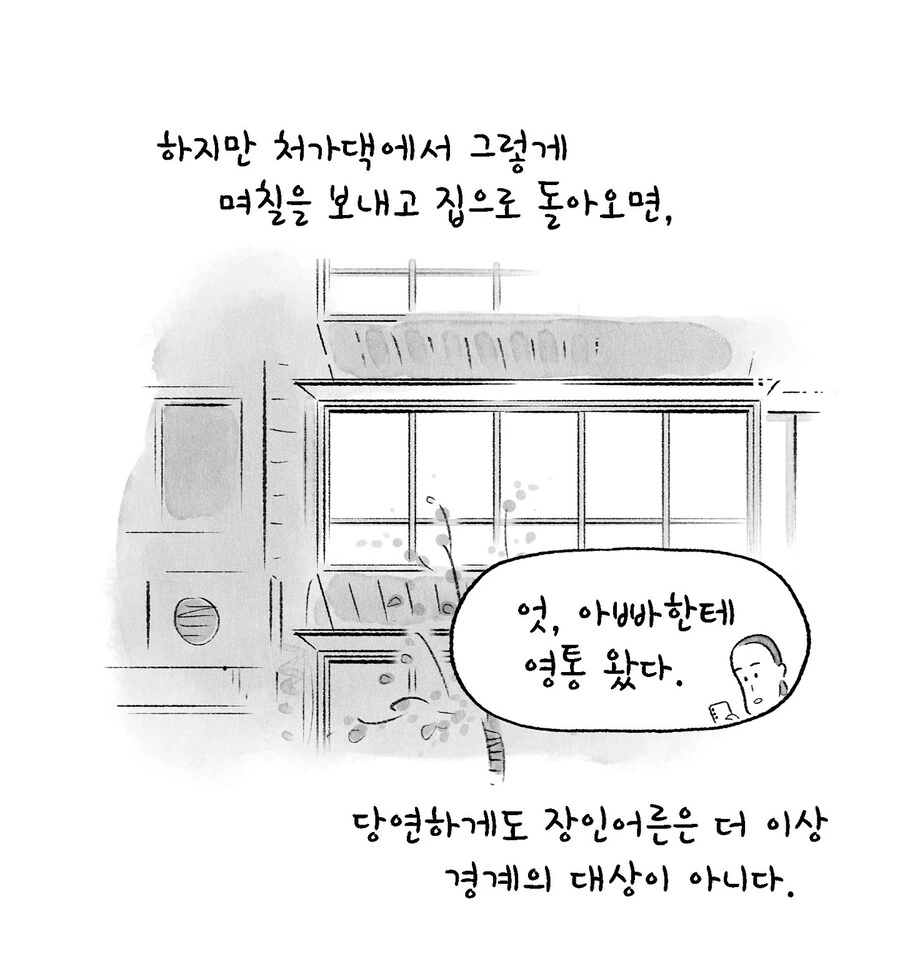 하지만 처가댁에서 그렇게
며칠을 보내고 집으로 돌아오면,
엇, 아빠한테
영통 왔다.
당연하게도 장인어른은 더 이상
경계의 대상이 아니다.